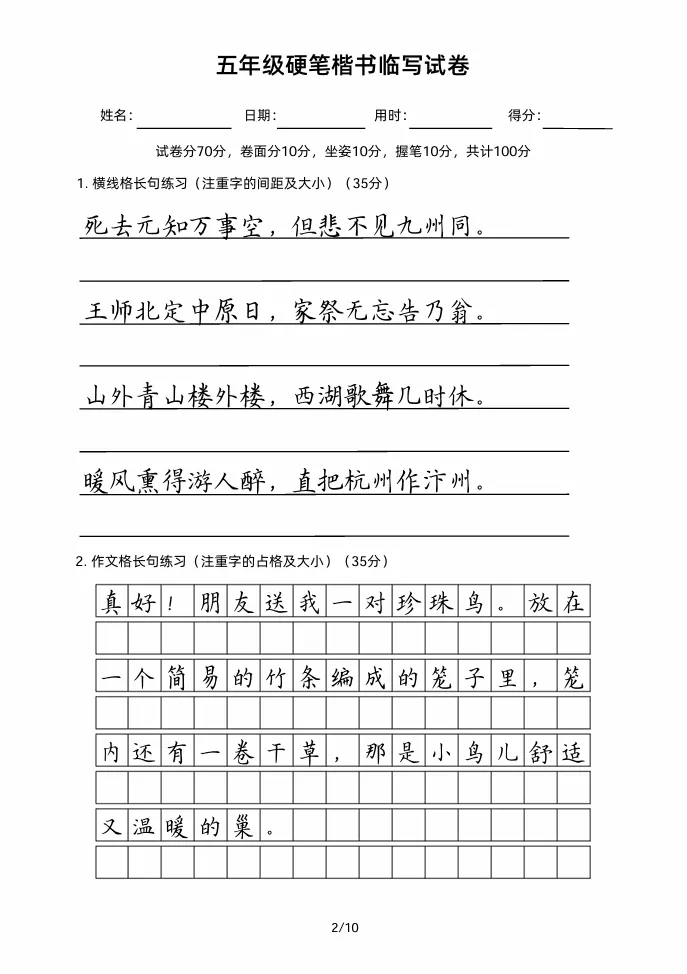 五年级硬笔楷书临写试卷
姓名： 日期： 用时： 得分：
试卷分70分，卷面分10分，坐姿10分，握笔10分，共计100分
1. 横线格长句练习（注重字的间距及大小）（35分）
死去元知万事空，但悲不见九州同。
王师北定中原日，家祭无忘告乃翁。
山外青山楼外楼，西湖歌舞几时休。
暖风熏得游人醉，直把杭州作汴州。
2. 作文格长句练习（注重字的占格及大小）（35分）
真好！朋友送我一对珍珠鸟。放在
一个简易的竹条编成的笼子里，笼
内还有一卷干草，那是小鸟儿舒适
又温暖的巢。
2/10